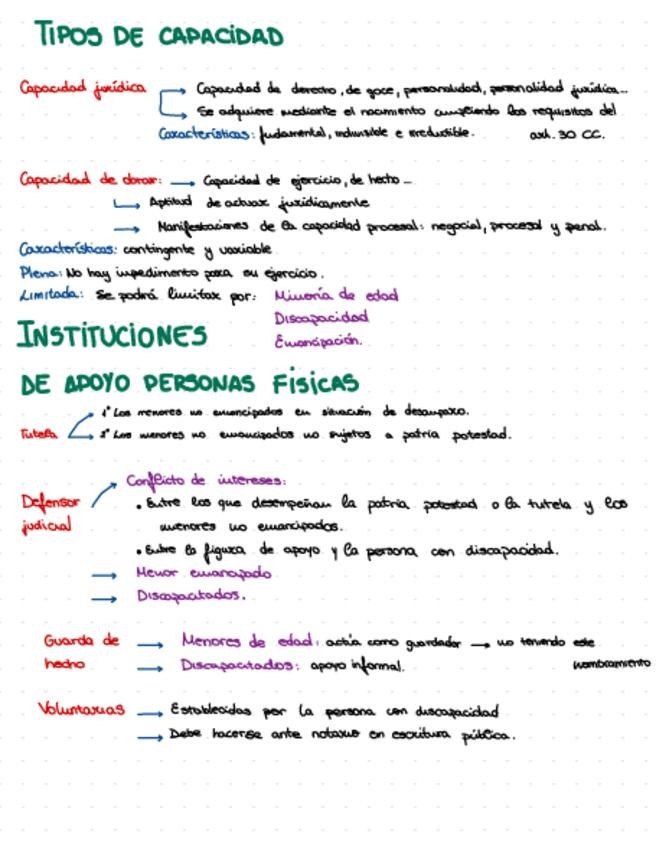 TIPOS DE CAPACIDAD
Capacidad jurídica → Capacidad de derecho, de goce, personalidad, personalidad jurídica...
→ Se adquiere mediante el nacimiento cumpliendo los requisitos del
Características: fudamental, indivisible e irreductible. art. 30 CC.
Capacidad de obrar: → Capacidad de ejercicio, de hecho...
→ Aptitud de actuar jurídicamente
→ Manifestaciones de la capacidad procesal: negocial, procesal y penal.
Características: contingente y variable
Plena: No hay impedimento para su ejercicio.
Limitada: Se podrá limitar por: Minoría de edad
Discapacidad
INSTITUCIONES Emancipación.
DE APOYO PERSONAS FÍSICAS
1º Los menores no emancipados en situación de desamparo.
Tutela 2º Los menores no emancipados no sujetos a patria potestad.
Conflicto de intereses:
Defensor • Entre los que desempeñan la patria potestad o la tutela y los
judicial menores no emancipados.
• Entre la figura de apoyo y la persona con discapacidad.
→ Menor emancipado
→ Discapacitados.
Guarda de → Menores de edad: actúa como guardador → no teniendo este
hecho → Discapacitados: apoyo informal. nombramiento
Voluntarias → Establecidas por la persona con discapacidad
→ Debe hacerse ante notario en escritura pública.